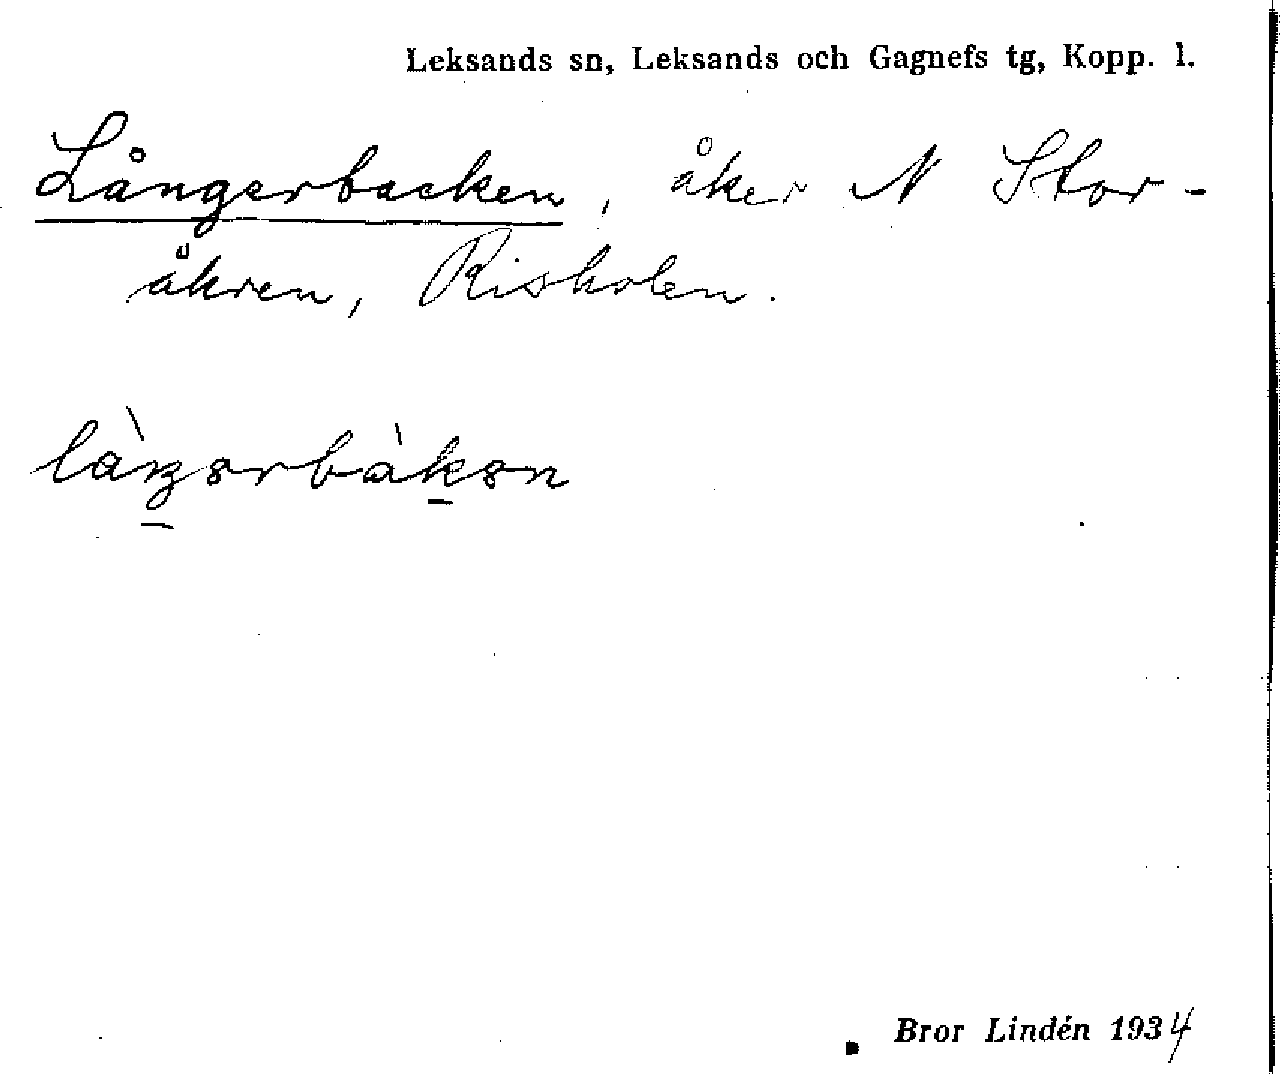 Leksands sn, Leksands och Gagnefs tg, Kopp. l.
Långerbacken, åker N Stor-
åkren, Risholen.
là̀ŋərbàkən
Bror Lindén 1934